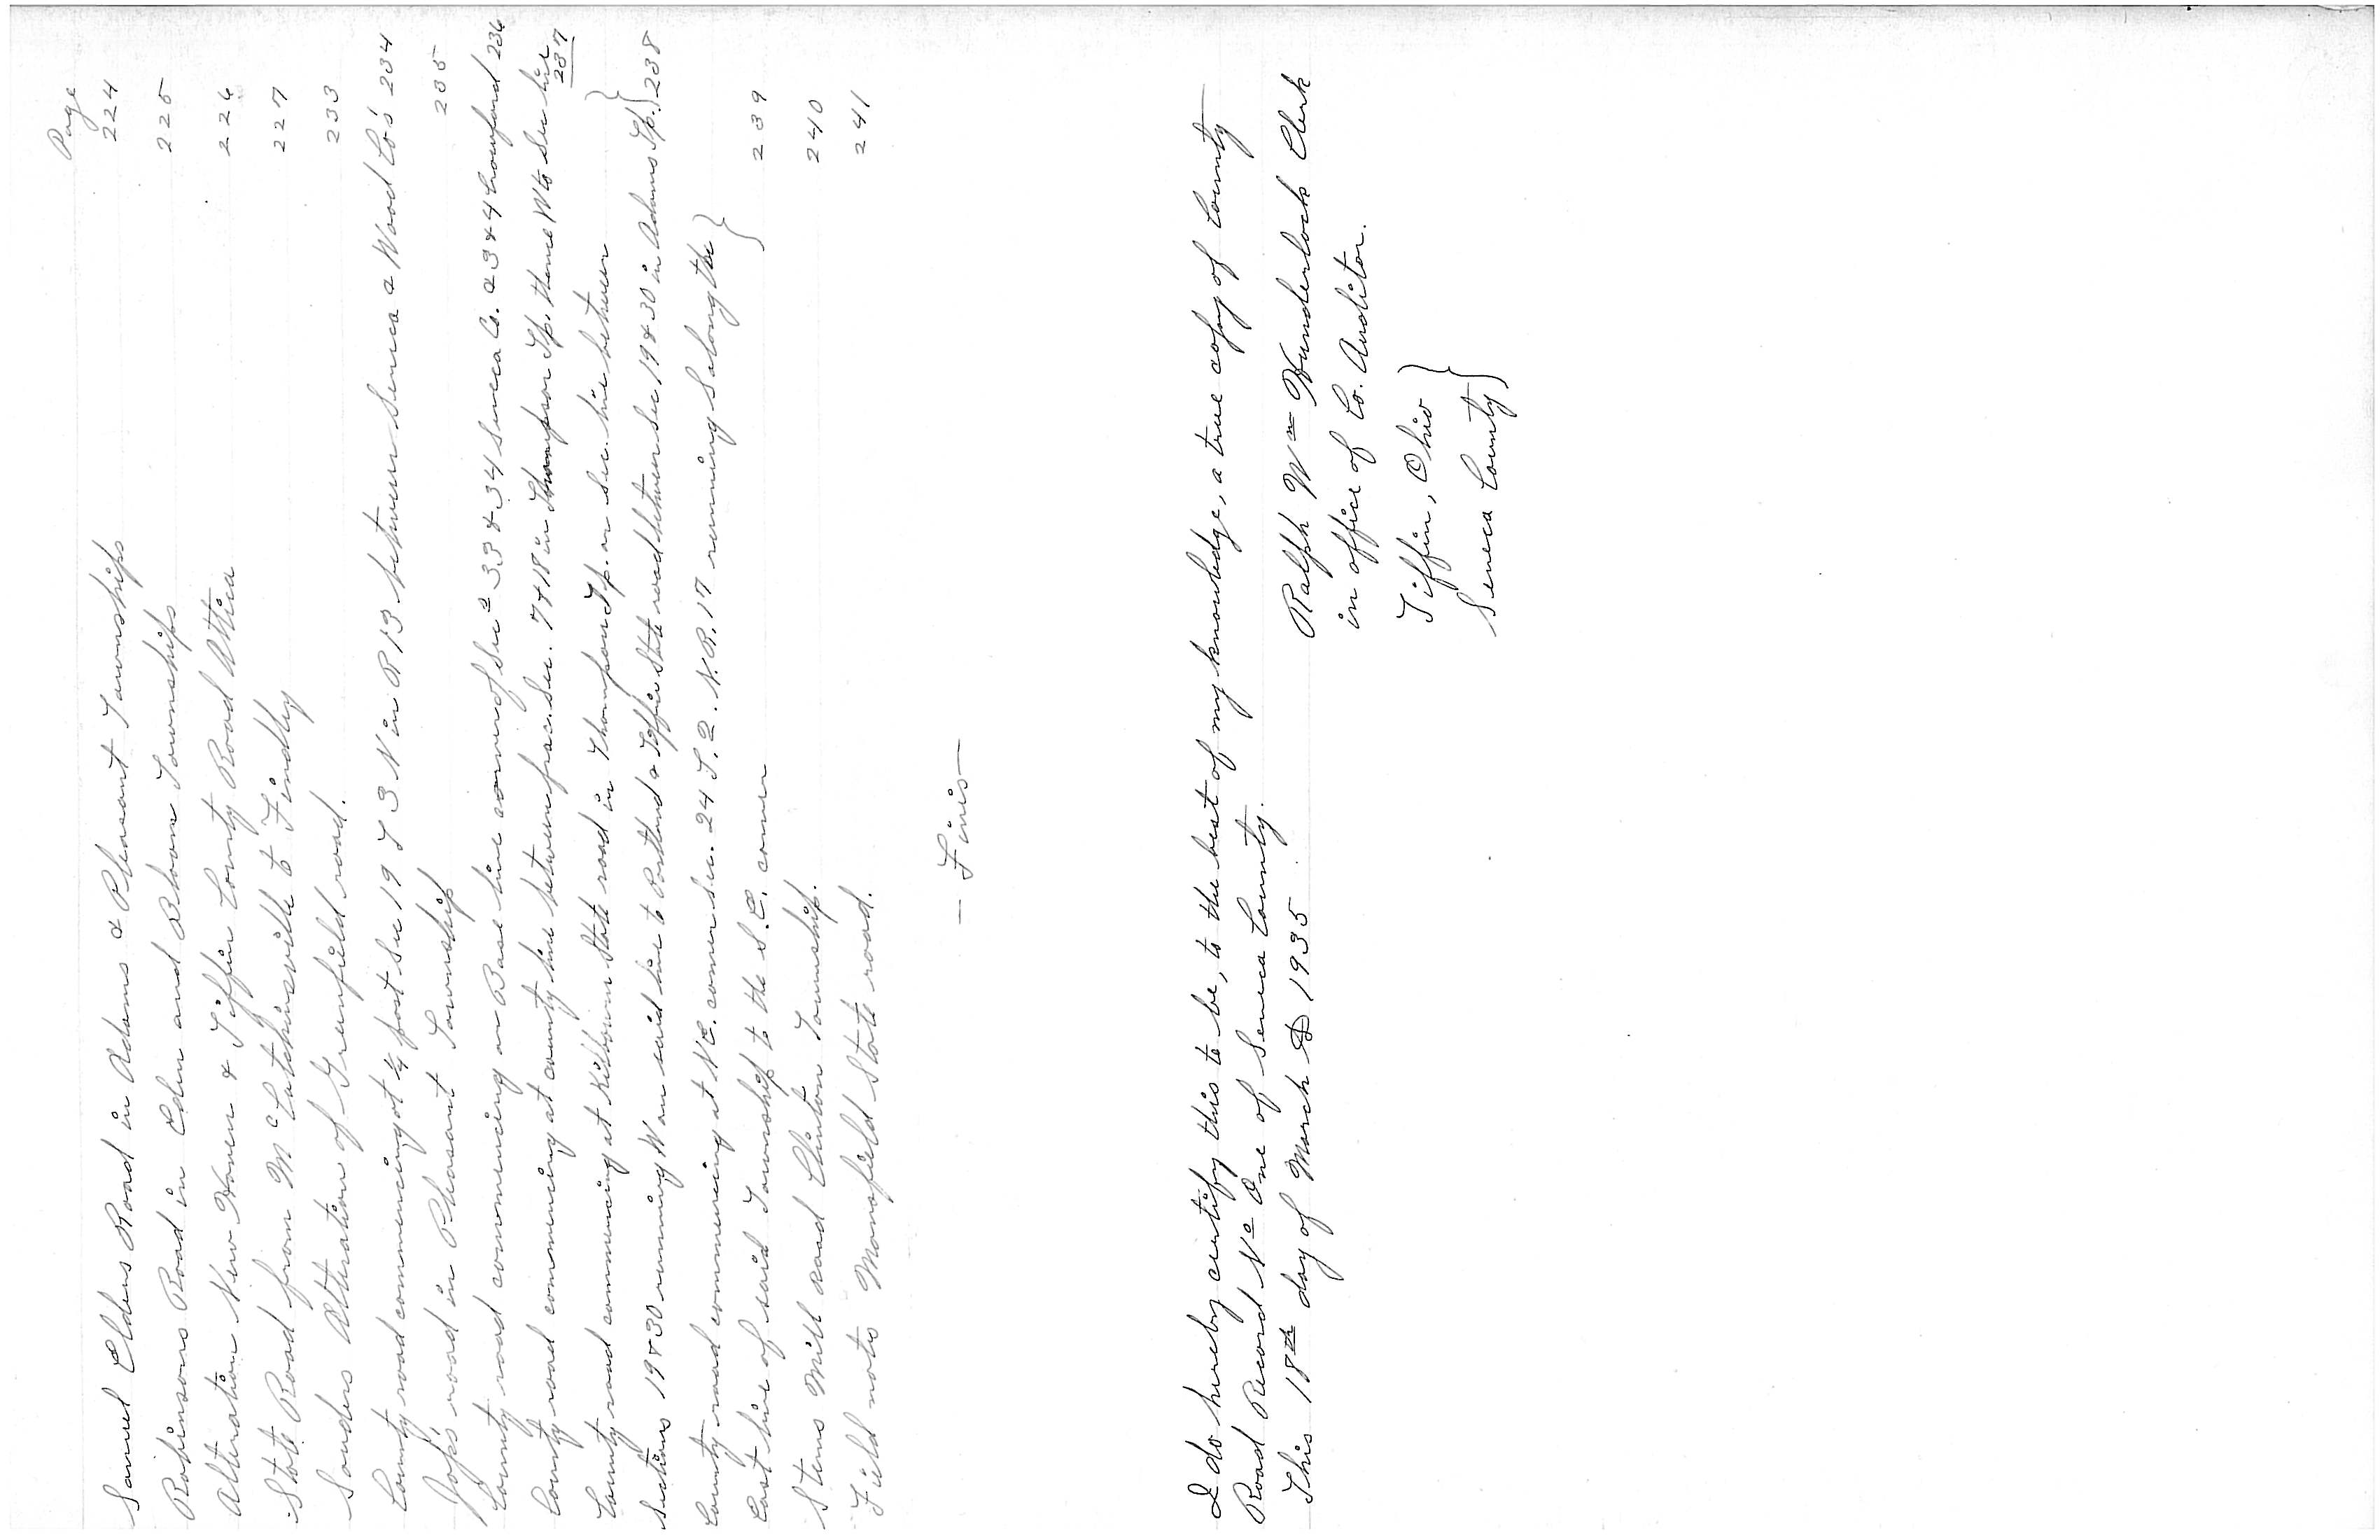 Page
Samuel Elders Road in Adams & Pleasant Townships 224
Robinsons Road in Eden and Bloom Townships 225
Alteration New Haven & Tiffin County Road Attica 226
State Road from McCutchinsville to Findley 227
Souders Alteration of Greenfield road. 233
County road commencing at ¼ post Sec 19 T 3 N in R 13 between Seneca & Wood Co's 234
Jop's road in Pleasant Township 235
County road commencing on Base line corner of Sec's 33 & 34 Seneca Co. & 3 & 4 Crawford 236
County road commencing at county line between frac. Sec. 7 & 18 in Thompson Tp. thence W to Sec line 237
County road commencing at Kilbourn State road in Thompson Tp. on Sec. line between
Sections 19 & 30 running W on said line to Portland & Tiffin State road between Sec 19 & 30 in Adams Tp. 238
County road commencing at N.E. corner Sec. 24 T. 2. N. R. 17 running S along the
East line of said Township to the S.E. corner 239
Sterns Mill road Clinton Township. 240
Field notes Mansfield State road. 241
— Finis —
I do hereby certify this to be, to the best of my knowledge, a true copy of County
Road Record No One of Seneca County.
This 18th day of March AD 1935
Ralph Wm Hunderlock Clerk
in office of Co. Auditor.
Tiffin, Ohio
Seneca County